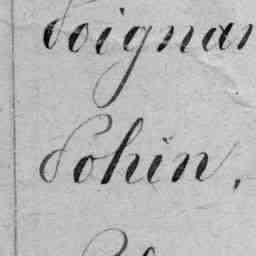 Poignan
Pohin.